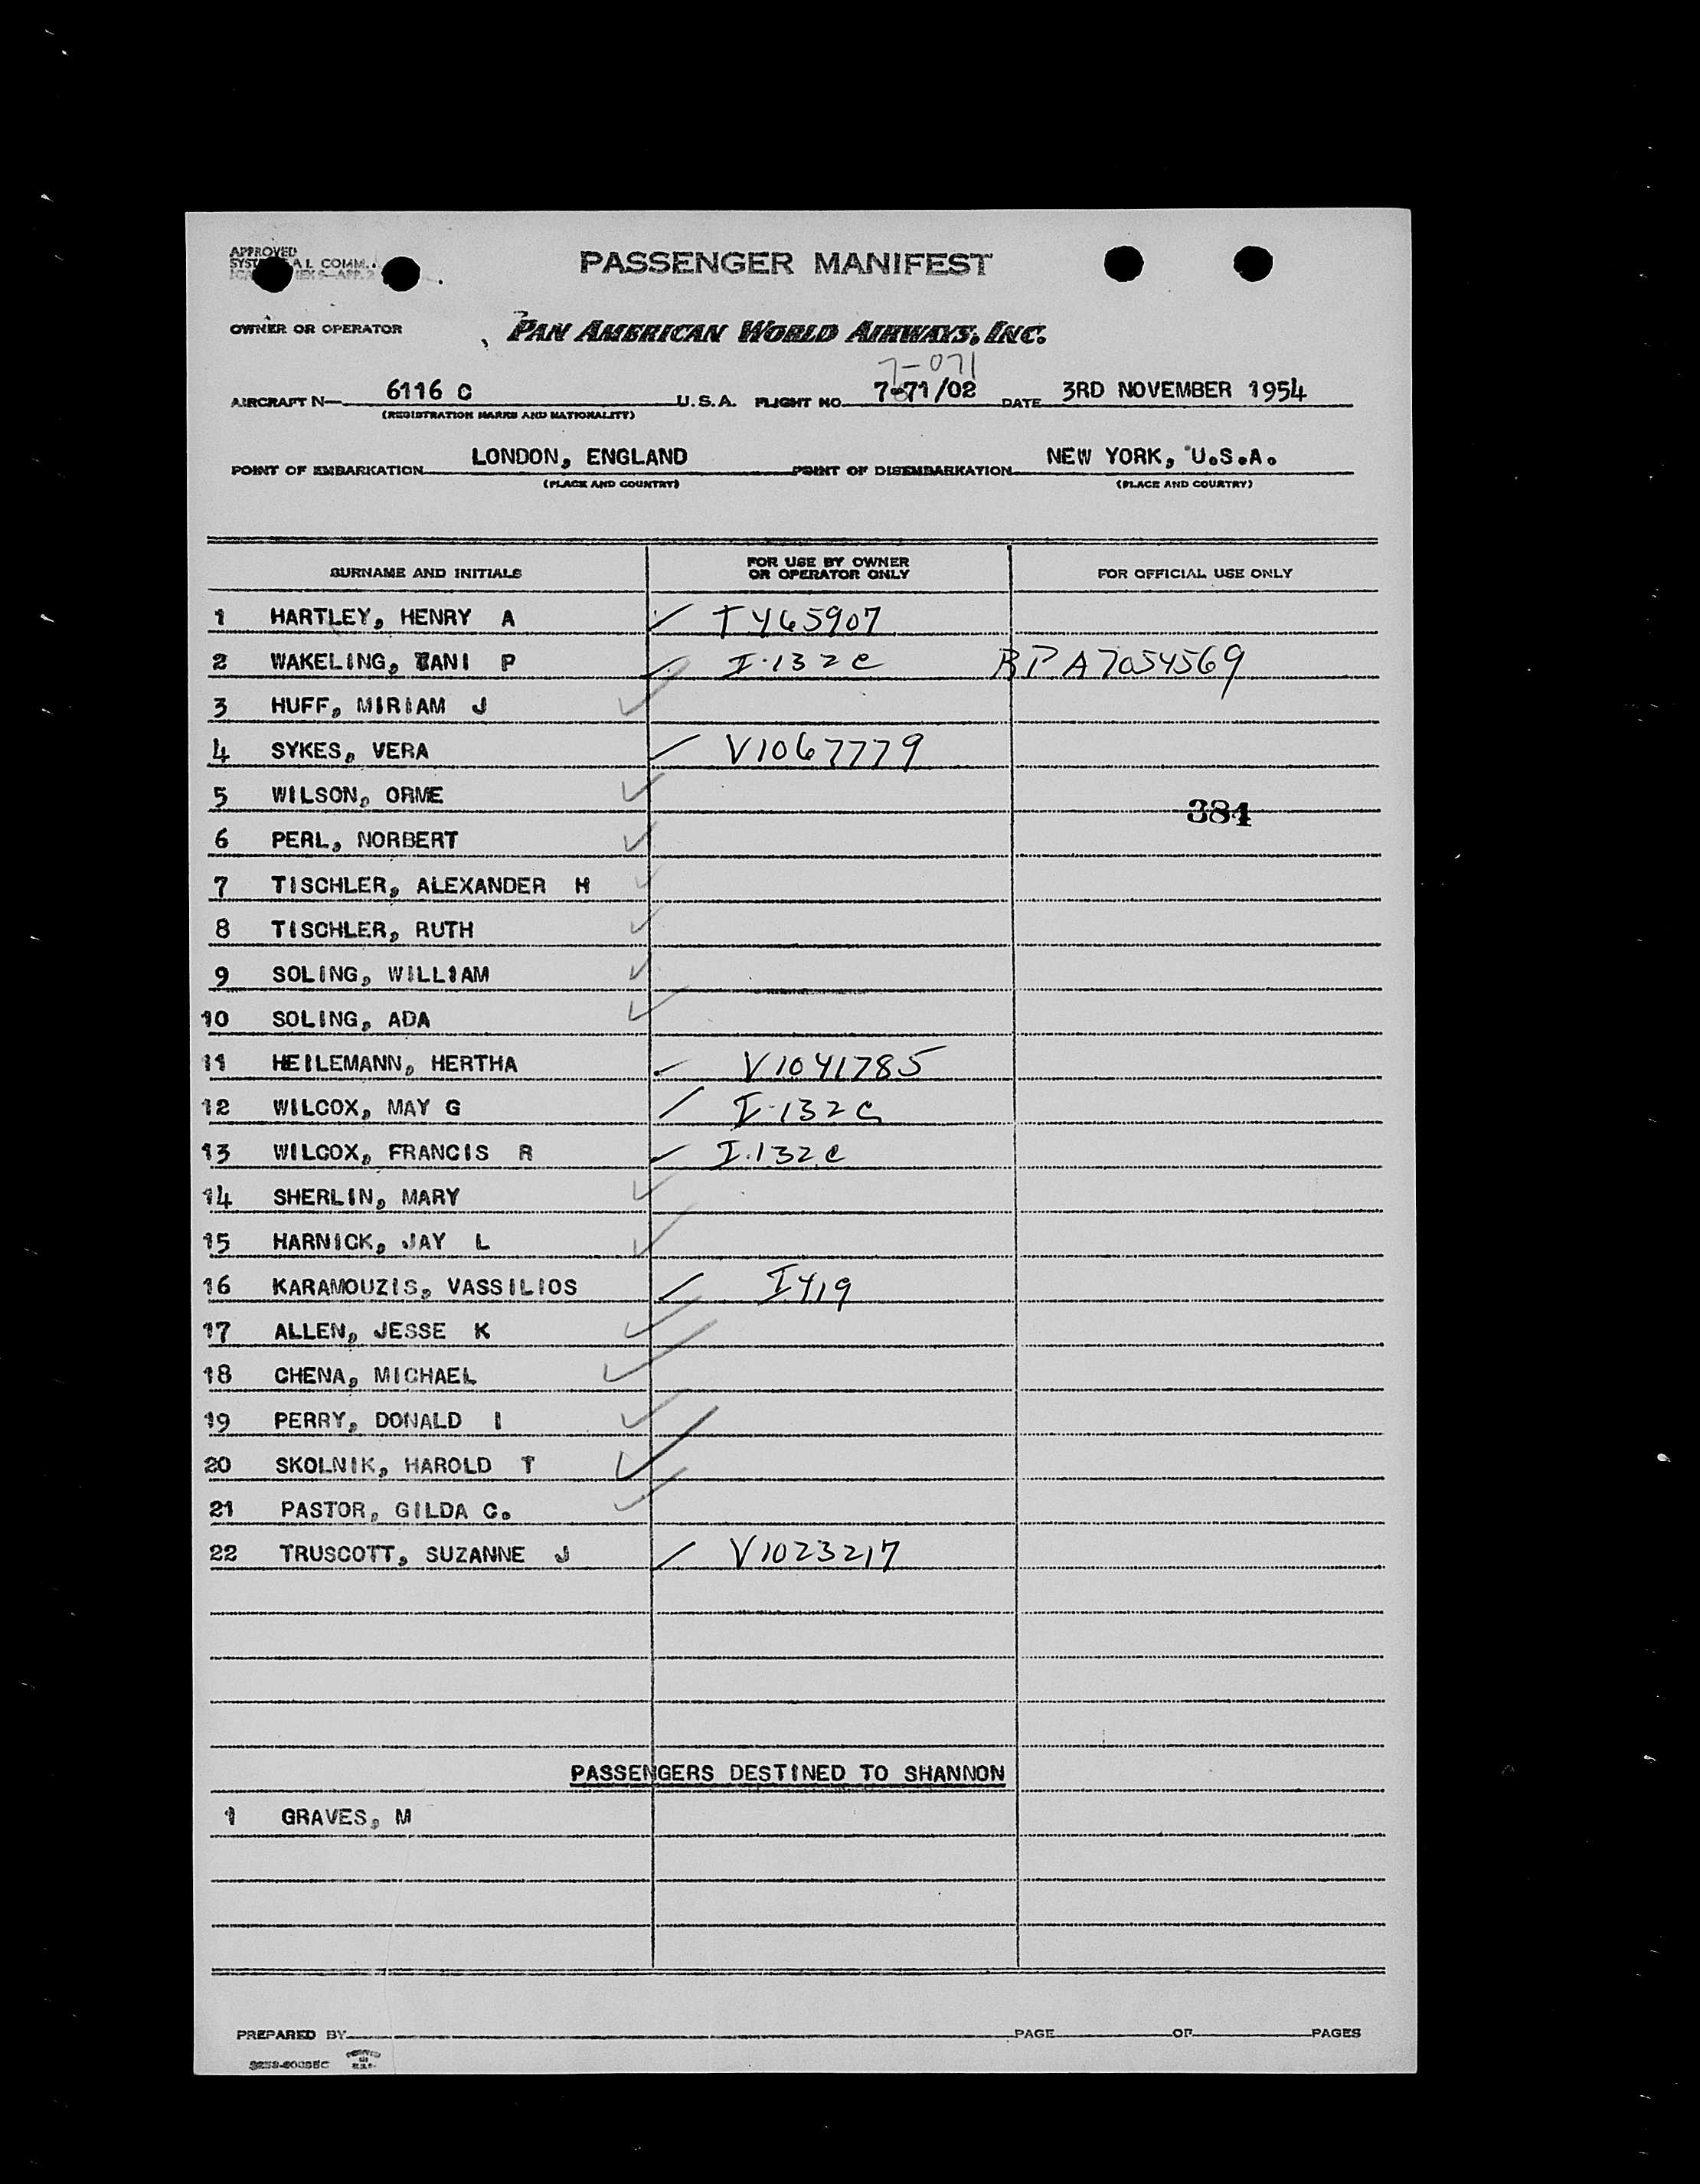 APPROVED
PASSENGER MANIFEST
OWNER OR OPERATOR PAN AMERICAN WORLD AIRWAYS, INC.
7-071
AIRCRAFT N— 6116 C U.S.A. FLIGHT NO. 7-71/02 DATE 3RD NOVEMBER 1954
(REGISTRATION MARKS AND NATIONALITY)
POINT OF EMBARKATION LONDON, ENGLAND POINT OF DISEMBARKATION NEW YORK, U.S.A.
(PLACE AND COUNTRY) (PLACE AND COUNTRY)
SURNAME AND INITIALS FOR USE BY OWNER OR OPERATOR ONLY FOR OFFICIAL USE ONLY
1 HARTLEY, HENRY A ✓ T465907
2 WAKELING, TANI P ✓ I-132c RP A7054569
3 HUFF, MIRIAM J ✓
4 SYKES, VERA ✓ V1067779
5 WILSON, ORME ✓ 384
6 PERL, NORBERT ✓
7 TISCHLER, ALEXANDER H ✓
8 TISCHLER, RUTH ✓
9 SOLING, WILLIAM ✓
10 SOLING, ADA ✓
11 HEILEMANN, HERTHA ✓ V1041785
12 WILCOX, MAY G ✓ I-132c
13 WILCOX, FRANCIS R ✓ I.132c
14 SHERLIN, MARY ✓
15 HARNICK, JAY L ✓
16 KARAMOUZIS, VASSILIOS ✓ I419
17 ALLEN, JESSE K ✓
18 CHENA, MICHAEL ✓
19 PERRY, DONALD I ✓
20 SKOLNIK, HAROLD T ✓
21 PASTOR, GILDA C. ✓
22 TRUSCOTT, SUZANNE J ✓ V1023217
PASSENGERS DESTINED TO SHANNON
1 GRAVES, M
PREPARED BY PAGE OF PAGES